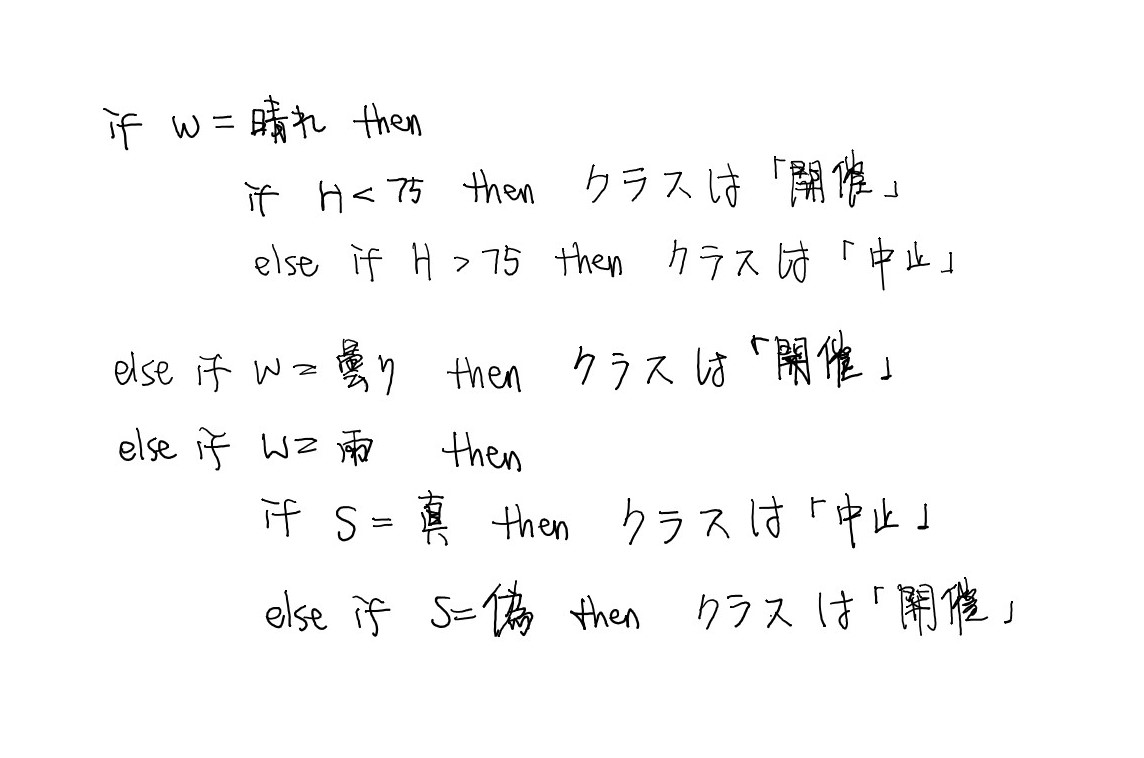 if W = 晴れ then
if H < 75 then クラスは「開催」
else if H > 75 then クラスは「中止」
else if W = 曇り then クラスは「開催」
else if W = 雨 then
if S = 真 then クラスは「中止」
else if S = 偽 then クラスは「開催」